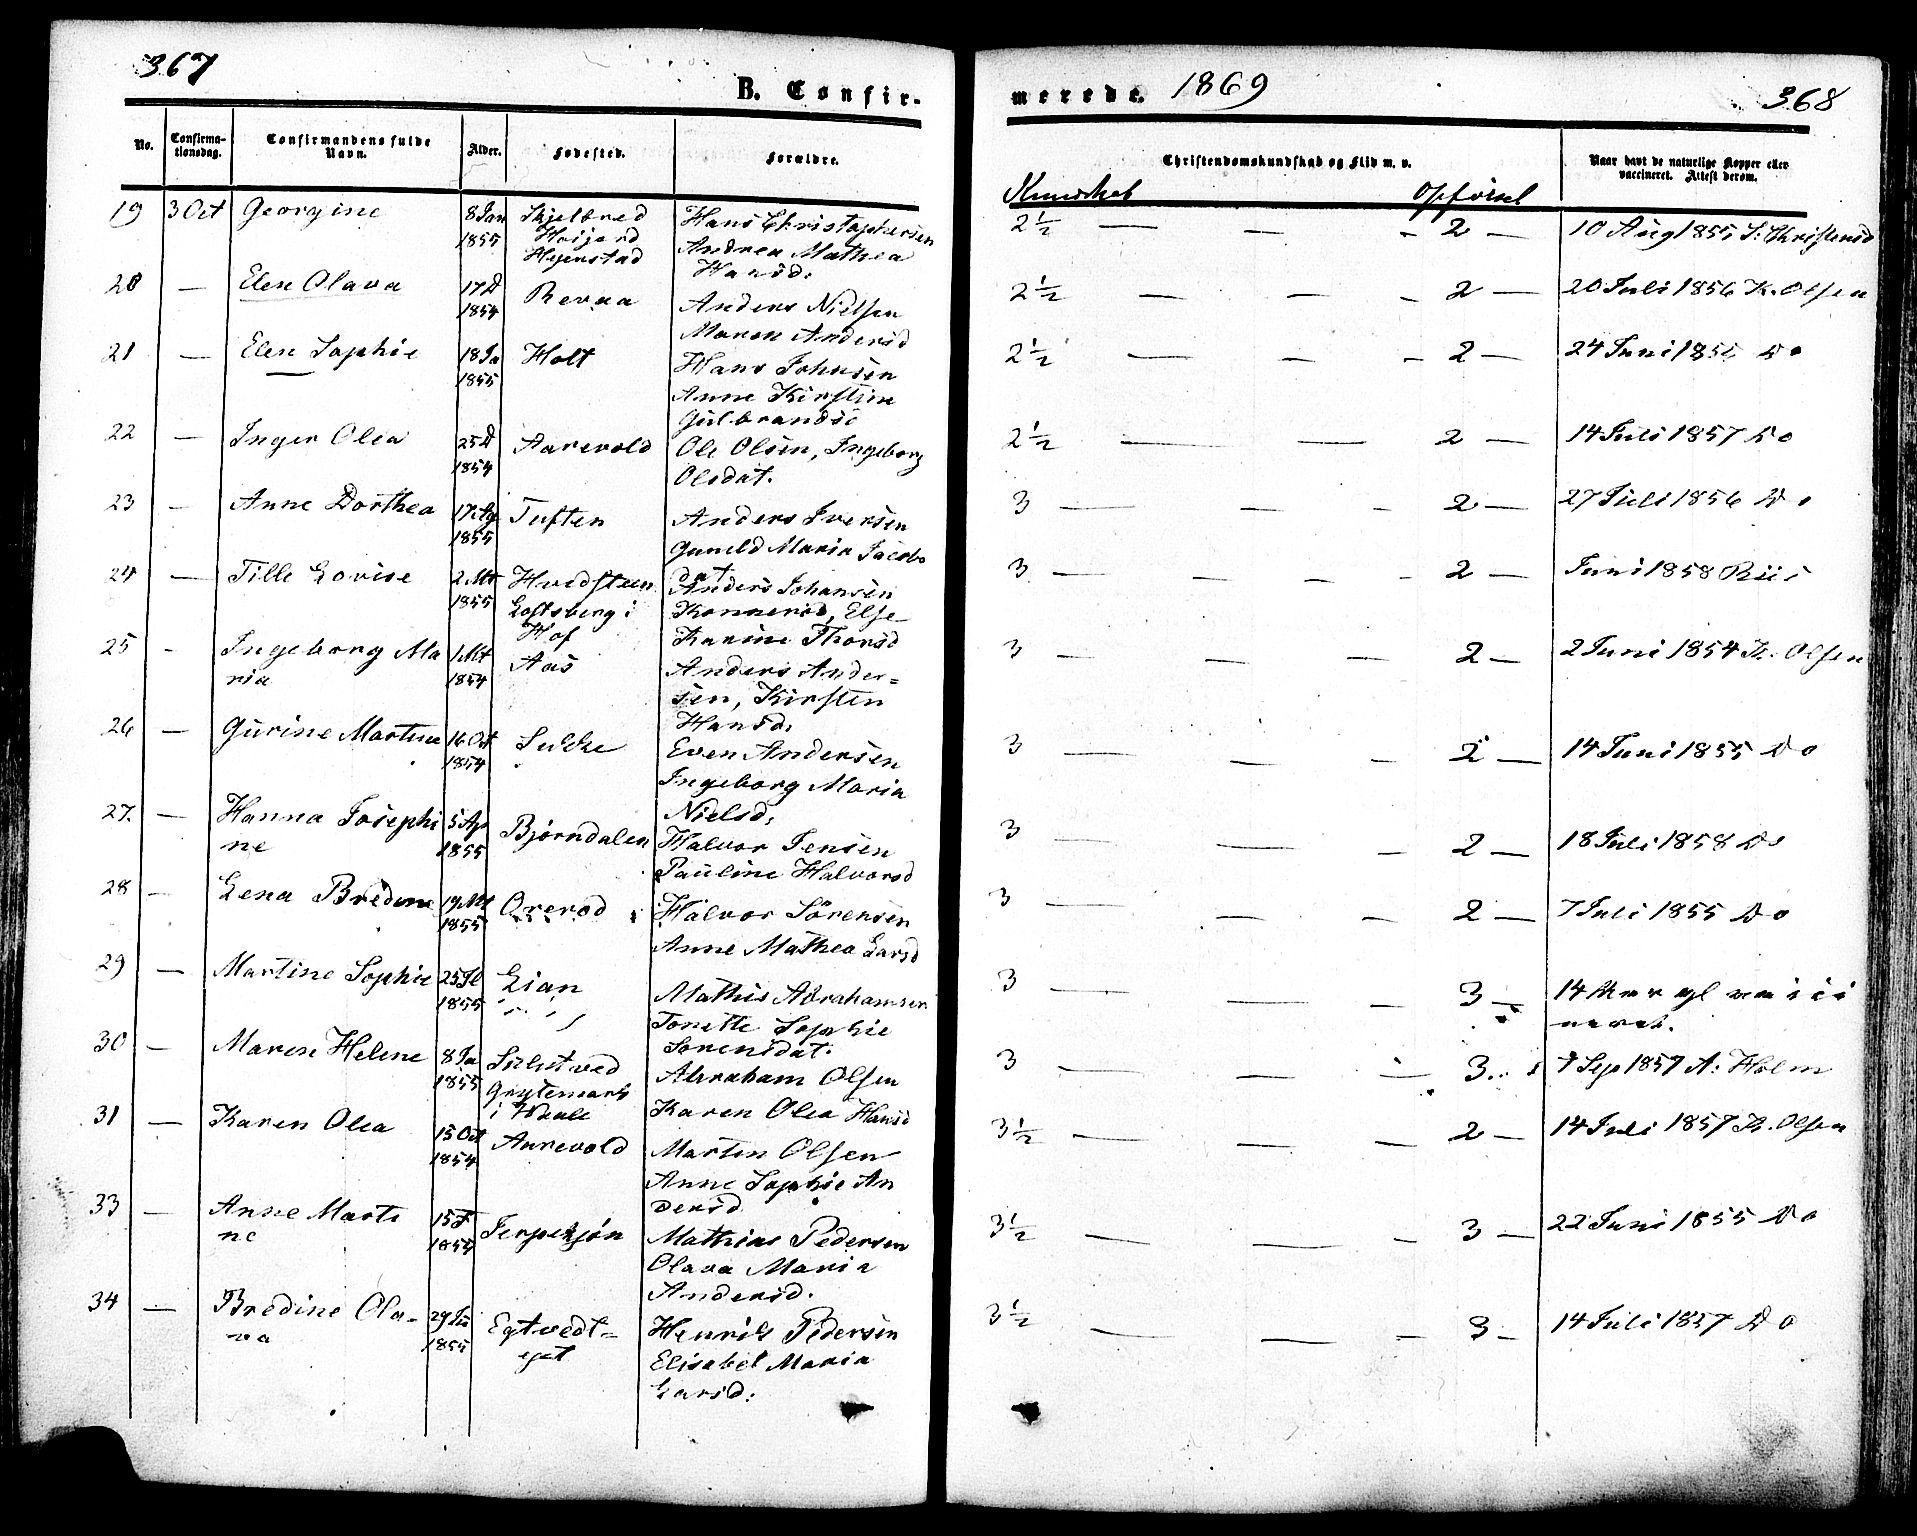 367
B. Confir-
No.
Confirma-
tionsdag.
Confirmandens fulde
Navn.
Alder.
Fødested.
Forældre.
19 3 Oct Georgine 8 Jan 1855 Skjelbred
Hans Christophersen
Andrea Mathea
Hansd.
20 — Elen Olava 17 D 1854 Revaa
Anders Nielsen
Maren Andersd
21 — Elen Sophie 18 Ja 1855 Holt
Hans Johnsen
Anne Kirstine
Gulbrandsd
22 — Inger Olea 25 D 1854 Aarevold
Ole Olsen, Ingeborg
Olsdat.
23 — Anne Dorthea 1855 Tuften
Anders Iversen
Gunild Maria Jacobs
dat
24 — Tille Lovise 2 Mt 1855 Hvidsteen
i
Hof
Anders Johansen
Else
Karine Thorsd
25 - Ingeborg Ma
ria
1 Mt 1854 Aas
Anders Ander=
sen, Kirsten
Hansd.
26 — Gurine Martine 16 Oct 1854 Sukke
Even Andersen
Ingeborg Maria
Nielsd.
27. — Hanna Josephi
ne
5 Ap 1855 Bjørndalen
Halvor Jensen
Pauline Halvorsd
28 — Lena Bredine 19 Mt 1855 Orerød
Halvor Sörensen
Anne Mathea Larsd
29 — Martine Sophie 1855 Lian
Mathis Abrahamsen
Tonette Sophie
Sorensdat.
30 — Maren Helene 8 Ja 1855
Abraham Olsen
Karen Olea Hansd
31 — Karen Olea 15 Oct 1854 Aarevold
Morten Olsen
Anne Sophie An
dersd
33 — Anne Marti
ne
15 F
Mathias Pedersen
Olava Maria
Andersd.
34 — Bredine Ola-
va
1855
Henrik Pedersen
Elisabet Maria
Larsd.
merede. 1869
368
Christendomskundskab og Flid m. v.
Naar havt de naturlige Kopper eller
vaccineret. Attest derom.
Kundskab
Opførsel
2½ — — - 2 — 10 Aug 1855 S: Christensd
2½ — — - 2 — 20 Juli 1856 K. Olsen
2½ — — - 2 — 24 Juni Do
2½ — — 2 — 14 Juli 1857 Do
3 — — - 2 — 27 Juli 1856 Do
3 — — - 2 — Juni 1858 Riis
3 — — — 2 — 2 Juni 1854 K. Olsen
3 — — - 2 — 14 Juni 1855 Do
3 — — - 2 — 18 Juli 1858 Do
3 — — - 2 — 7 Juli 1855 Do
3 — — - 3 — 14
neret.
3 — — 3 7 Sep 1857 A: Holm
3½ — — - 2 — 14 Juli 1857 K. Olsen
3½ — — - 3 — 22 Juni 1855 Do
3½ — — - 3 - 14 Juli 1857 Do